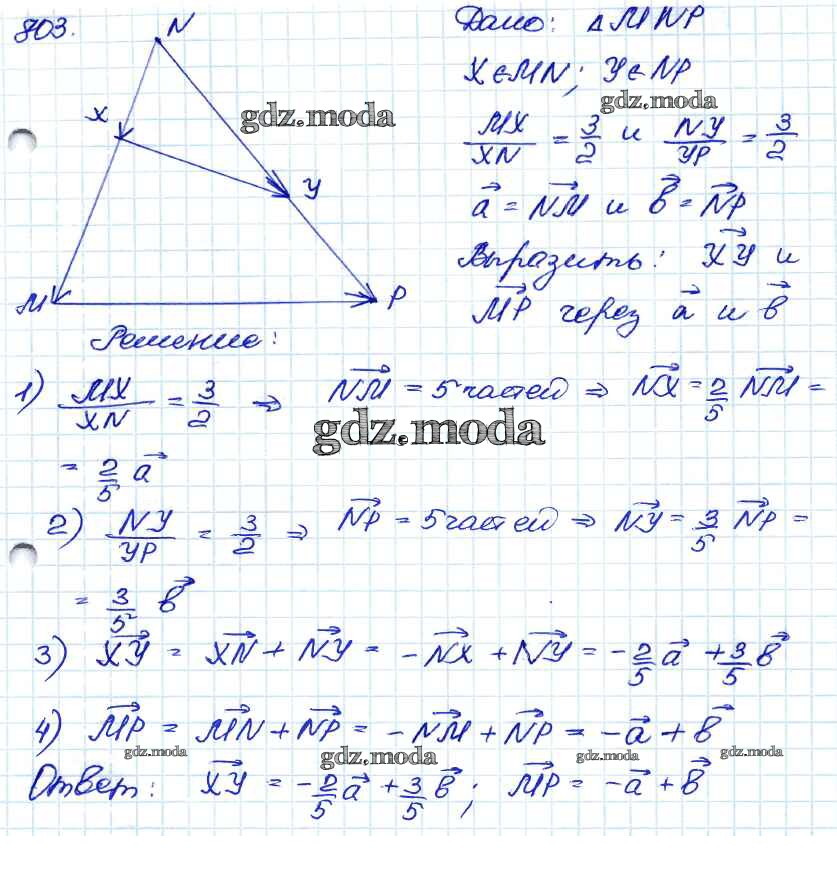 803.
N
X
Y
M
P
Дано: △MNP
X∈MN; Y∈NP
gdz.moda
gdz.moda
MX/XN = 3/2 и NY/YP = 3/2
a⃗ = NM⃗ и b⃗ = NP⃗
Выразить: XY⃗ и
MP⃗ через a⃗ и b⃗
Решение:
1) MX/XN = 3/2 ⇒ NM⃗ = 5 частей ⇒ NX⃗ = 2/5 NM⃗ =
gdz.moda
= 2/5 a⃗
2) NY/YP = 3/2 ⇒ NP⃗ = 5 частей ⇒ NY⃗ = 3/5 NP⃗ =
= 3/5 b⃗
3) XY⃗ = XN⃗ + NY⃗ = -NX⃗ + NY⃗ = -2/5 a⃗ + 3/5 b⃗
4) MP⃗ = MN⃗ + NP⃗ = -NM⃗ + NP⃗ = -a⃗ + b⃗
gdz.moda gdz.moda gdz.moda gdz.moda
Ответ: XY⃗ = -2/5 a⃗ + 3/5 b⃗; MP⃗ = -a⃗ + b⃗